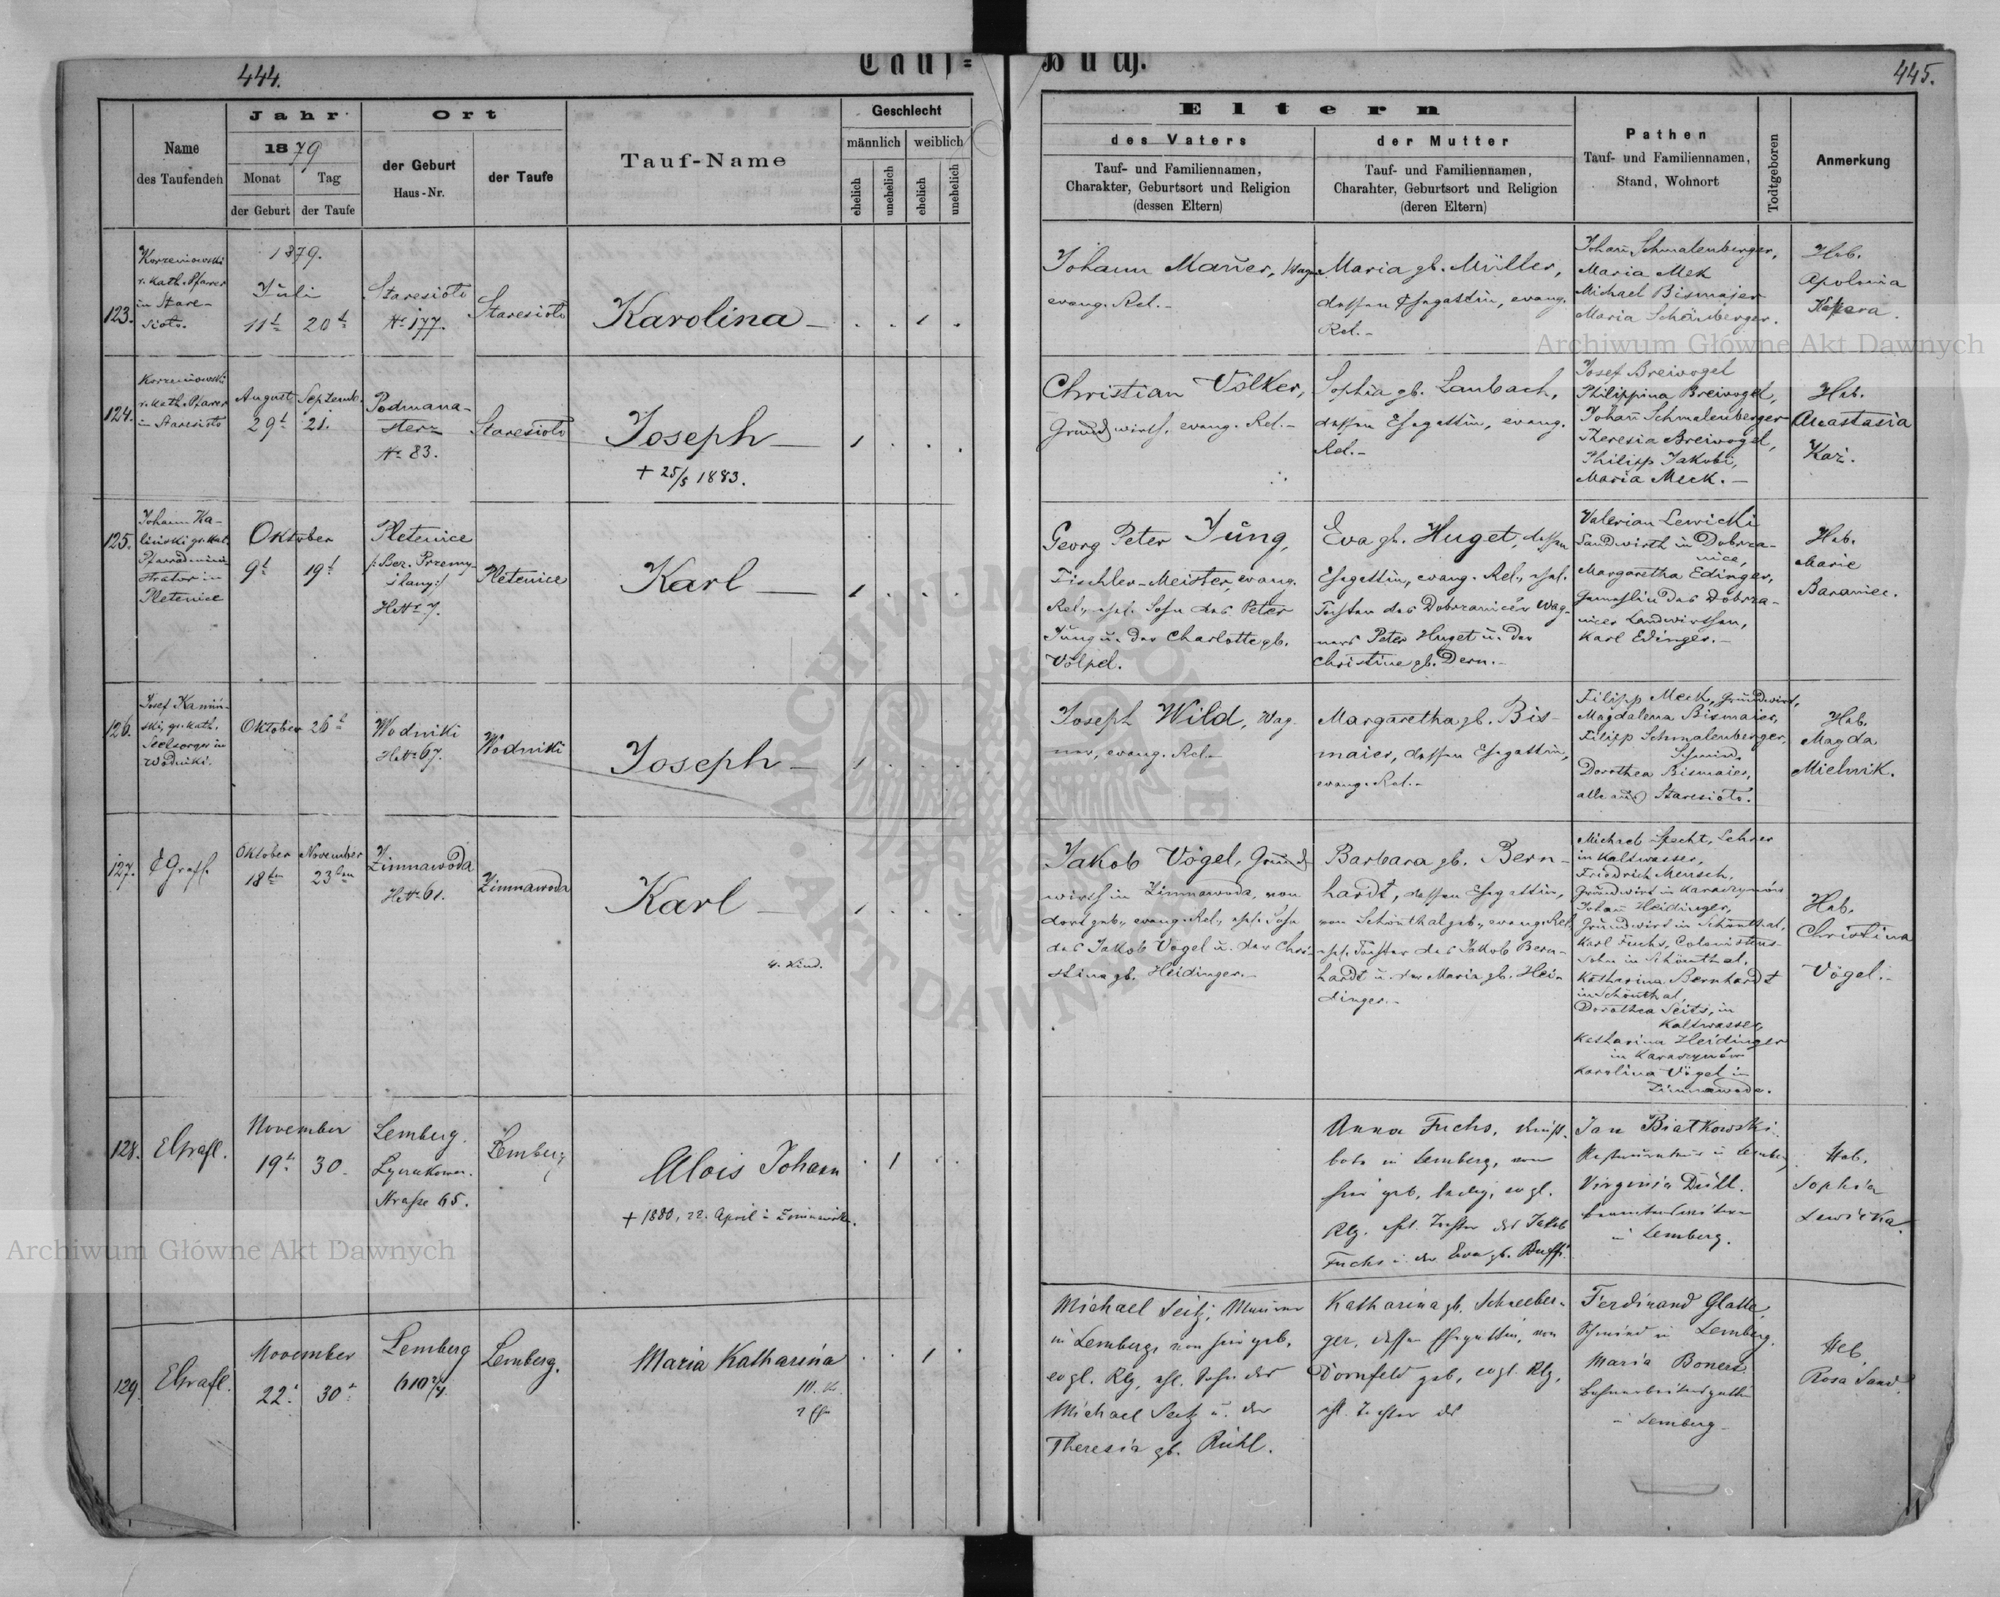 444.
Tauf=
Buch.
445.
Name
des Taufenden
Jahr
1879
Monat
Tag
der Geburt
der Taufe
Ort
der Geburt
Haus-Nr.
der Taufe
Tauf-Name
Geschlecht
männlich
weiblich
ehelich
unehelich
ehelich
unehelich
Eltern
des Vaters
Tauf- und Familiennamen,
Charakter, Geburtsort und Religion
(dessen Eltern)
der Mutter
Tauf- und Familiennamen,
Charahter, Geburtsort und Religion
(deren Eltern)
Pathen
Tauf- und Familiennamen,
Stand, Wohnort
Todtgeboren
Anmerkung
123.
Korzeniowski
r. kath. Pfarrer
in Stare-
sioło.
1879.
Juli
11t
20t
Staresioło
No 177.
Staresioło
Karolina
1
Johann Maurer,
evang. Rel.
Maria gb. Müller,
dessen Ehegattin, evang.
Rel.
Johañ Schmalenberger,
Maria Mek
Michael Bismajer
Maria Schönberger.
Heb.
Apolonia
124.
Korzeniowski
r. kath. Pfarrer
in Staresioło
August
29t
Septemb.
21.
Podmana-
sterz
No 83.
Staresioło
Joseph
+ 25/5 1883.
1
Christian Völker,
Grundwirth, evang. Rel.
Sophia gb. Laubach,
dessen Ehegattin, evang.
Rel.
Josef Breiwogel
Philippina Breiwogel,
Johañ Schmalenberger
Theresia Breiwogel,
Philipp Jakobi,
Maria Meck.
Heb.
Anastasia
125.
Johann Ka-
liński gr. kat.
Pfarradmini-
strator in
Pletenice
Oktober
9t
19t
Pletenice
/: Bez. Przemy-
ślany :/
HNo 7.
Pletenice
Karl
1
Georg Peter Jung,
Tischler-Meister, evang.
Rel., ehel. Sohn des Peter
Jung u. der Charlotte gb.
Völpel.
Eva gb. Huget, dessen
Ehegattin, evang. Rel., ehel.
Tochter des Dobrzanicer Wag-
ners Peter Huget u. der
Christine gb. Dern.
Valerian Lewicki
Landwirth in Dobrza-
nice,
Margaretha Edinger,
Gemahlin des Dobrza-
nicer Landwirthen,
Karl Edinger.
Heb.
Marie
Baraniec.
126.
Josef Kamin-
ski, gr. kath.
Seelsorger in
Wodniki.
Oktober
26t
Wodniki
HNo 67.
Wodniki
Joseph
1
Joseph Wild, Wag-
ner, evang. Rel.
Margaretha gb. Bis-
maier, dessen Ehegattin,
evang. Rel.
Filipp Meck, Grundwirt,
Magdalena Bismaier,
Filipp Schmalenberger,
Schmied,
Dorothea Bismaier,
alle aus Staresioło.
Heb.
Magda
Mielnik.
127.
Oktober
18ten
November
23ten
Zimnawoda
HNo 61.
Zimnawoda
Karl
4. Kind.
1
Jakob Vogel, Grund-
wirth in Zimnawoda, von
dort geb., evang. Rel., ehel. Sohn
des Jakob Vogel u. der Chri-
stina gb. Heidinger.
Barbara gb. Bern-
hardt, dessen Ehegattin,
von Schönthal geb., evang. Rel.
ehel. Tochter des Jakob Bern-
hardt u. der Maria gb. Hei-
dinger.
Michael Specht, Lehrer
in Kaltwasser,
Friedrich Mensch,
Grundwirt in Karaczynów
Johañ Heidinger,
Grundwirt in Schönthal,
Karl Fuchs, Colonistens-
Sohn in Schönthal,
Katharina Bernhardt
in Schönthal,
Dorothea Seits, in
Kaltwasser,
Katharina Heidinger
in Karaczynów
Karolina Vogel in
Zimnawoda.
Heb.
Christina
Vogel.
128.
November
19t
30.
Lemberg.
Strasse 65.
Lemberg
Alois Johann
+ 1880, 22. April
1
Anna Fuchs,
in Lemberg, von
hier geb. ledig, evgl.
Rlg. ehl. Tochter des Jakob
Fuchs u. der Eva gb.
Jan Białkowski
in Lemberg
Virginia
in Lemberg.
Heb.
Sophia
Lewicka.
129.
November
22.
30.
Lemberg
610 2/4
Lemberg.
Maria Katharina
1
Michael Seitz, Maurer
in Lemberg, von hier geb.
evgl. Rlg, ehl. Sohn des
Michael Seitz u. der
Theresia gb. Rühl.
Katharina gb. Schneeber-
ger, dessen Ehegattin, von
Dornfeld geb, evgl. Rlg,
ehl. Tochter des
Ferdinand
Schmied in Lemberg.
Maria
in Lemberg
Heb.
Rosa
Archiwum Główne Akt Dawnych
Archiwum Główne Akt Dawnych
ARCHIWUM GŁÓWNE
AKT DAWNYCH